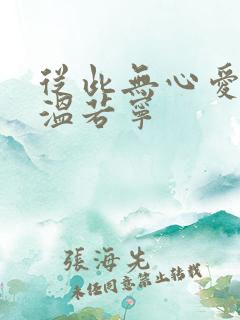 從此無心愛
溫若寧
張海先
未經同意禁止轉載